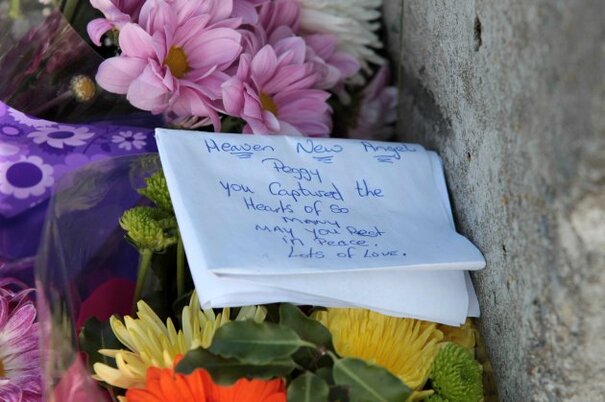 Heaven New Angel
Peggy
you Captured the
Hearts of so
many
May you Rest
in Peace.
Lots of Love.